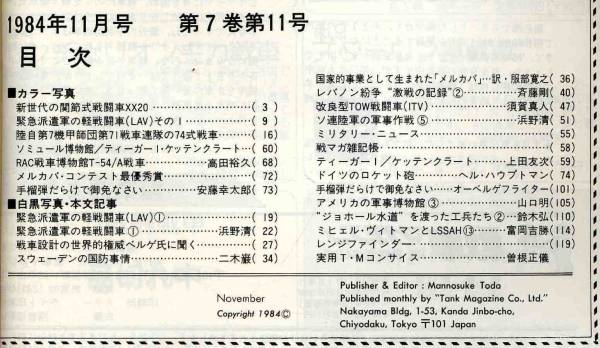 1984年11月号　第7巻第11号
目　次
■カラー写真
新世代の関節式戦闘車XX20 …………………( 3 )
緊急派遣軍の軽戦闘車(LAV)その1 …………( 9 )
陸自第7機甲師団第71戦車連隊の74式戦車…………(16)
ソミュール博物館／ティーガーI・ケッテンクラート…(60)
RAC戦車博物館T-54/A戦車…………高田裕久(68)
メルカバ・コンテスト最優秀賞…………………(72)
手榴弾だらけで御免なさい…………安藤幸太郎(73)
■白黒写真・本文記事
緊急派遣軍の軽戦闘車(LAV)①…………………(19)
緊急戦闘車①…………………浜野清(22)
戦車設計の世界的権威ベルゲ氏に聞く…………(27)
スウェーデンの国防事情…………………二木巌(34)
国家的事業として生まれた「メルカバ」…訳・服部寛之(36)
レバノン紛争“激戦の記録”②…………斉藤剛(40)
改良型TOW戦闘車(ITV)…………須賀真人(47)
ソ連陸軍の軍事作戦⑤…………………浜野清(51)
ミリタリー・ニュース…………………(55)
戦マガ雑記帳…………………(58)
ティーガーI／ケッテンクラート…………上田友次(59)
ドイツのロケット砲…………ヘル・ハウプトマン(74)
手榴弾だらけで御免なさい……オーベルゲフライター(101)
アメリカの軍事博物館③…………………山口明(105)
“ジョホール水道”を渡った工兵たち②…鈴木弘(110)
ミヒェル・ヴィトマンとLSSAH⑬…………富岡吉勝(114)
レンジファインダー…………………(119)
実用T・Mコンサイス…………………曽根正儀
November
Copyright 1984©
Publisher & Editor : Mannosuke Toda
Published monthly by "Tank Magazine Co., Ltd."
Nakayama Bldg, 1-53, Kanda Jinbo-cho,
Chiyodaku, Tokyo 〒101 Japan